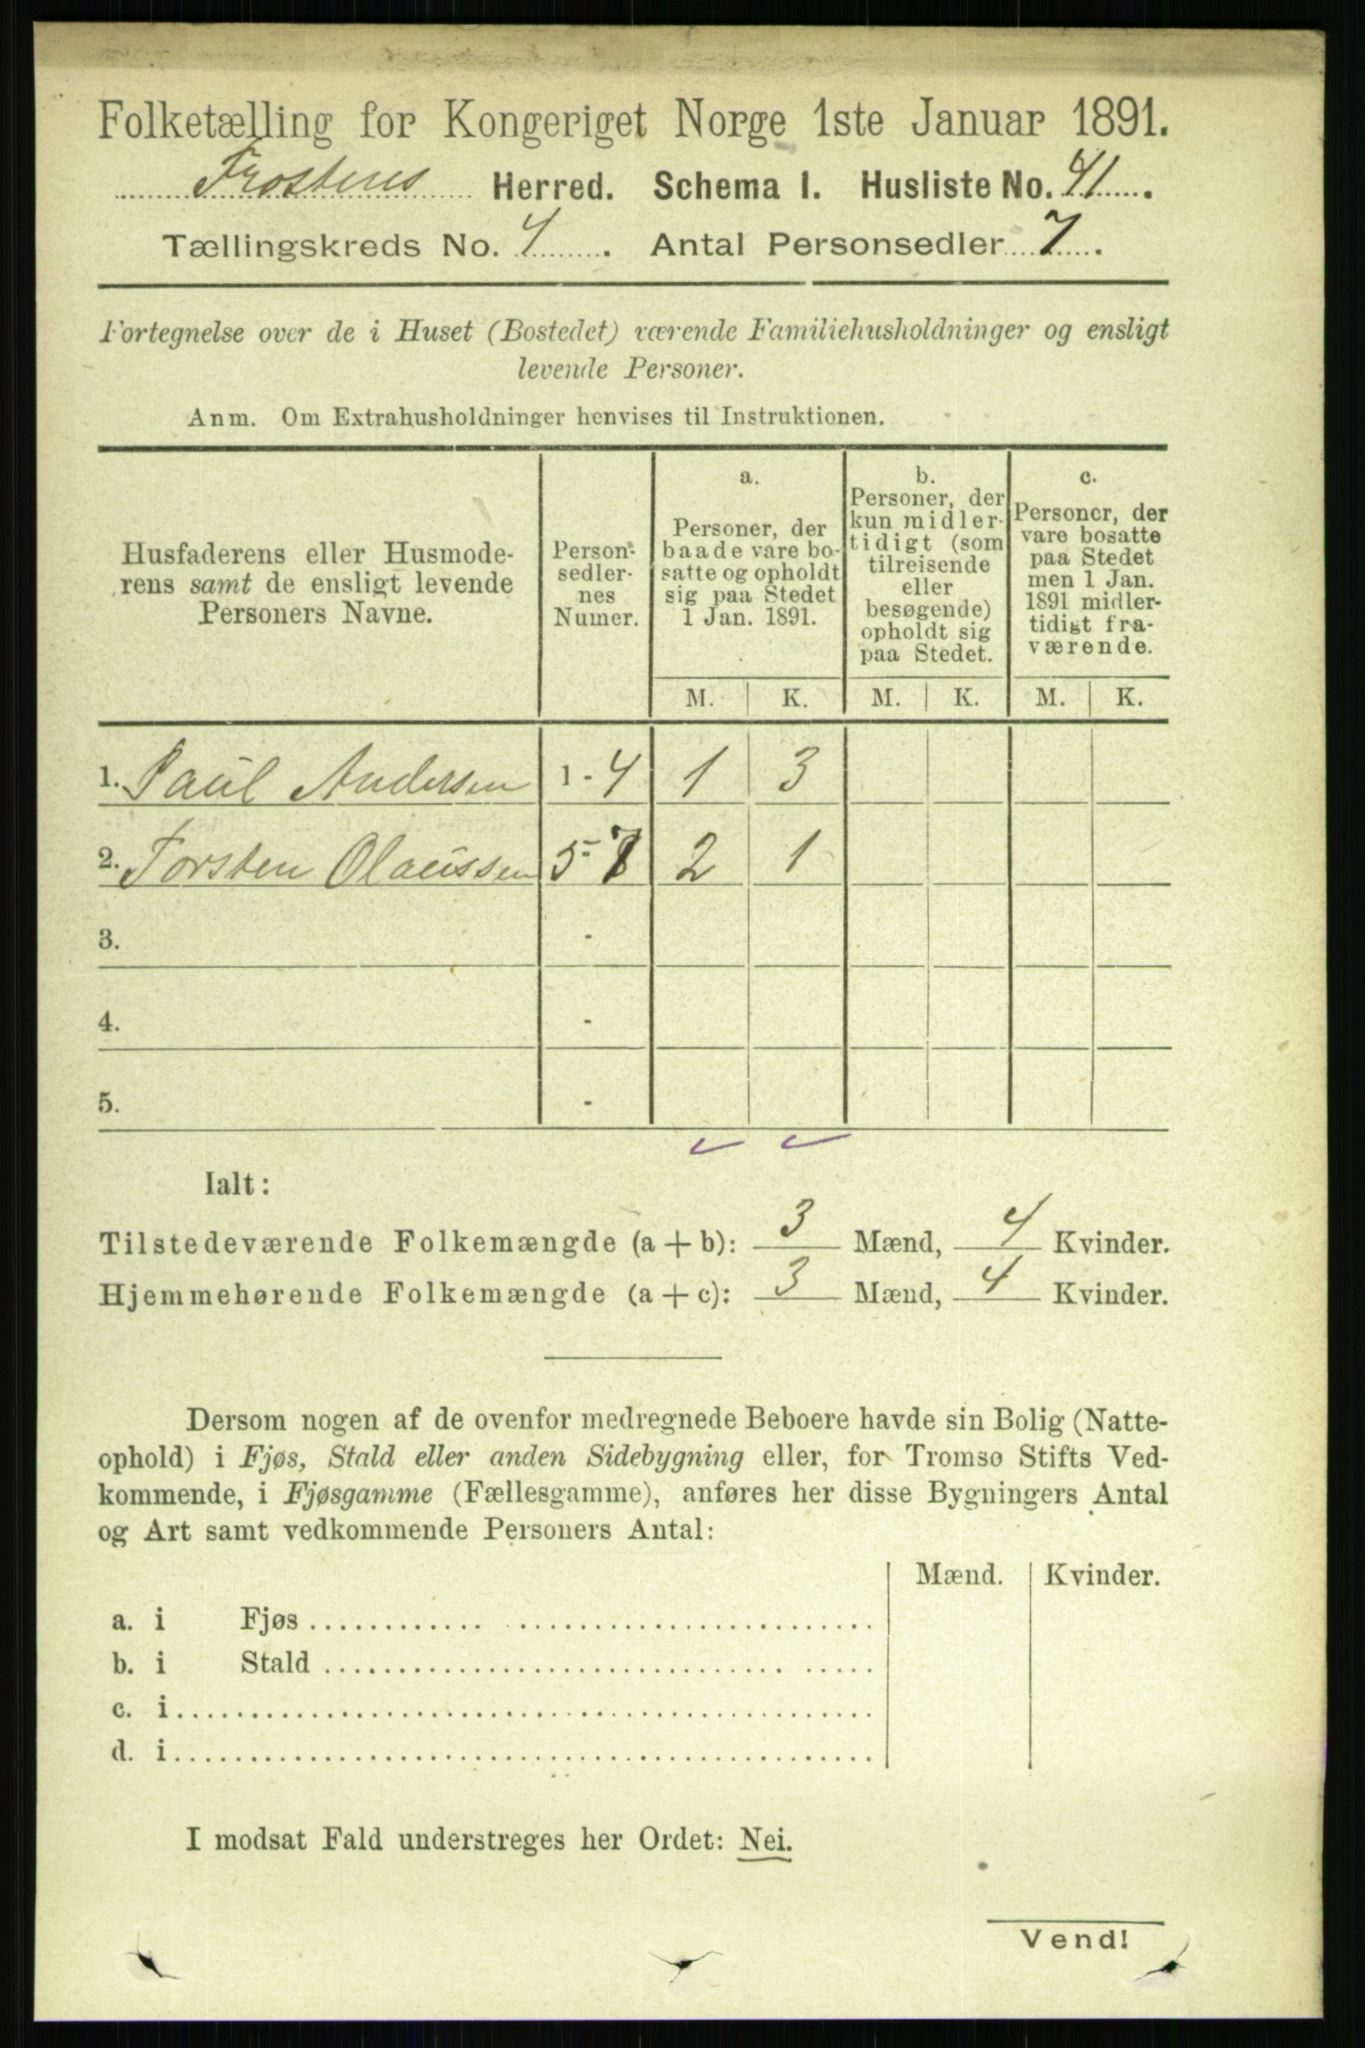 Folketælling for Kongeriget Norge 1ste Januar 1891.
Frostens Herred. Schema 1. Husliste No. 41.
Tællingskreds No. 4. Antal Personsedler 7.
Fortegnelse over de i Huset (Bostedet) værende Familiehusholdninger og ensligt
levende Personer.
Anm. Om Extrahusholdninger henvises til Instruktionen.
Husfaderens eller Husmode-
rens samt de ensligt levende
Personers Navne.
Person-
sedler-
nes
Numer.
a.
Personer, der
baade vare bo-
satte og opholdt
sig paa Stedet
1 Jan. 1891.
b.
Personer, der
kun midler-
tidigt (som
tilreisende
eller
besøgende)
opholdt sig
paa Stedet.
c.
Personer, der
vare bosatte
paa Stedet
men 1 Jan.
1891 midler-
tidigt fra-
værende.
M. K. M. K. M. K.
1. Paul Andersen 1 - 4 1 3
2. Torsten Olaussen 5 - 7 2 1
3. -
4. -
5. -
Ialt:
Tilstedeværende Folkemængde (a + b): 3 Mænd, 4 Kvinder.
Hjemmehørende Folkemængde (a + c): 3 Mænd, 4 Kvinder.
Dersom nogen af de ovenfor medregnede Beboere havde sin Bolig (Natte-
ophold) i Fjøs, Stald eller anden Sidebygning eller, for Tromsø Stifts Ved-
kommende, i Fjøsgamme (Fællesgamme), anføres her disse Bygningers Antal
og Art samt vedkommende Personers Antal:
Mænd. Kvinder.
a. i Fjøs
b. i Stald
c. i
d. i
I modsat Fald understreges her Ordet: Nei.
Vend!